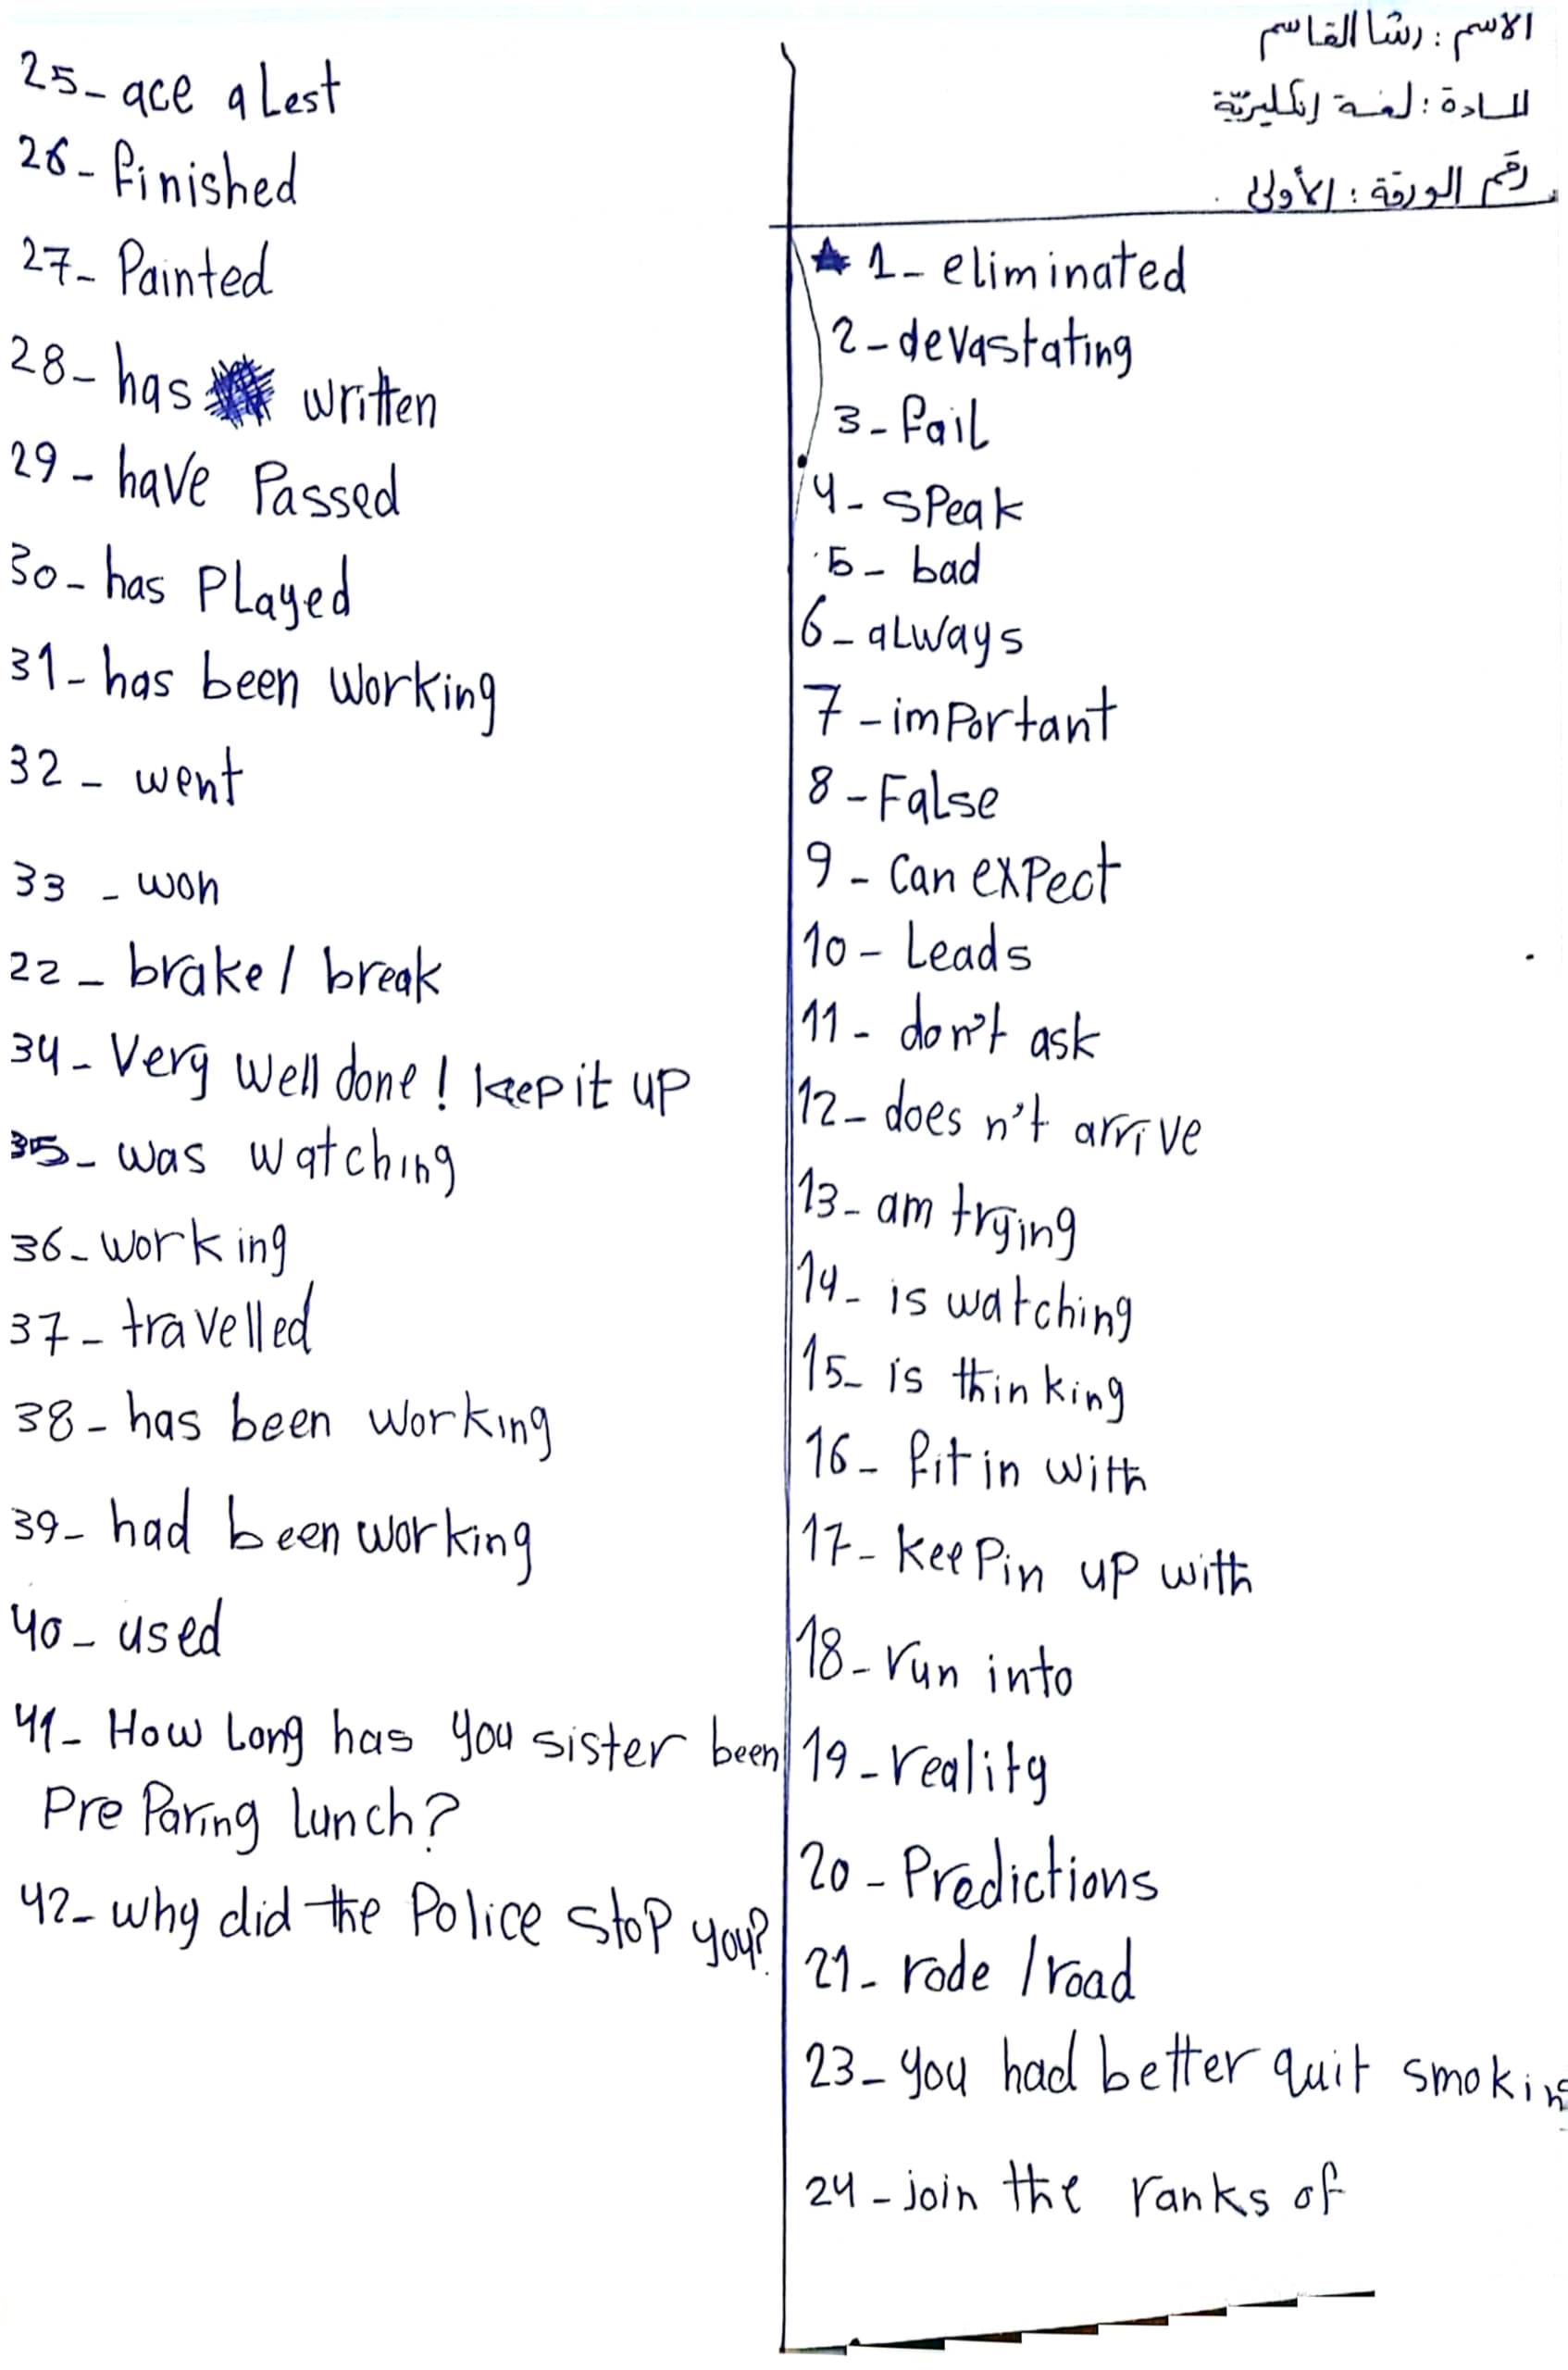 الاسم : رشا القاسم
المادة : لغة إنكليزية
رقم الورقة : الأولى .
1- eliminated
2- devastating
3- fail
4- speak
5- bad
6- always
7- important
8- False
9- Can expect
10- Leads
11- don't ask
12- does n't arrive
13- am trying
14- is watching
15- is thinking
16- fit in with
17- keepin up with
18- run into
19- reality
20- Predictions
21- rode / road
23- you had better quit smokin
24- join the ranks of
25- ace a Lest
26- finished
27- Painted
28- has written
29- have Passed
30- has Played
31- has been working
32- went
33- won
22- brake / break
34- Very well done! keep it up
35- was watching
36- working
37- travelled
38- has been working
39- had been working
40- used
41- How Long has you sister been
PreParing lunch?
42- why did the Police stop you?